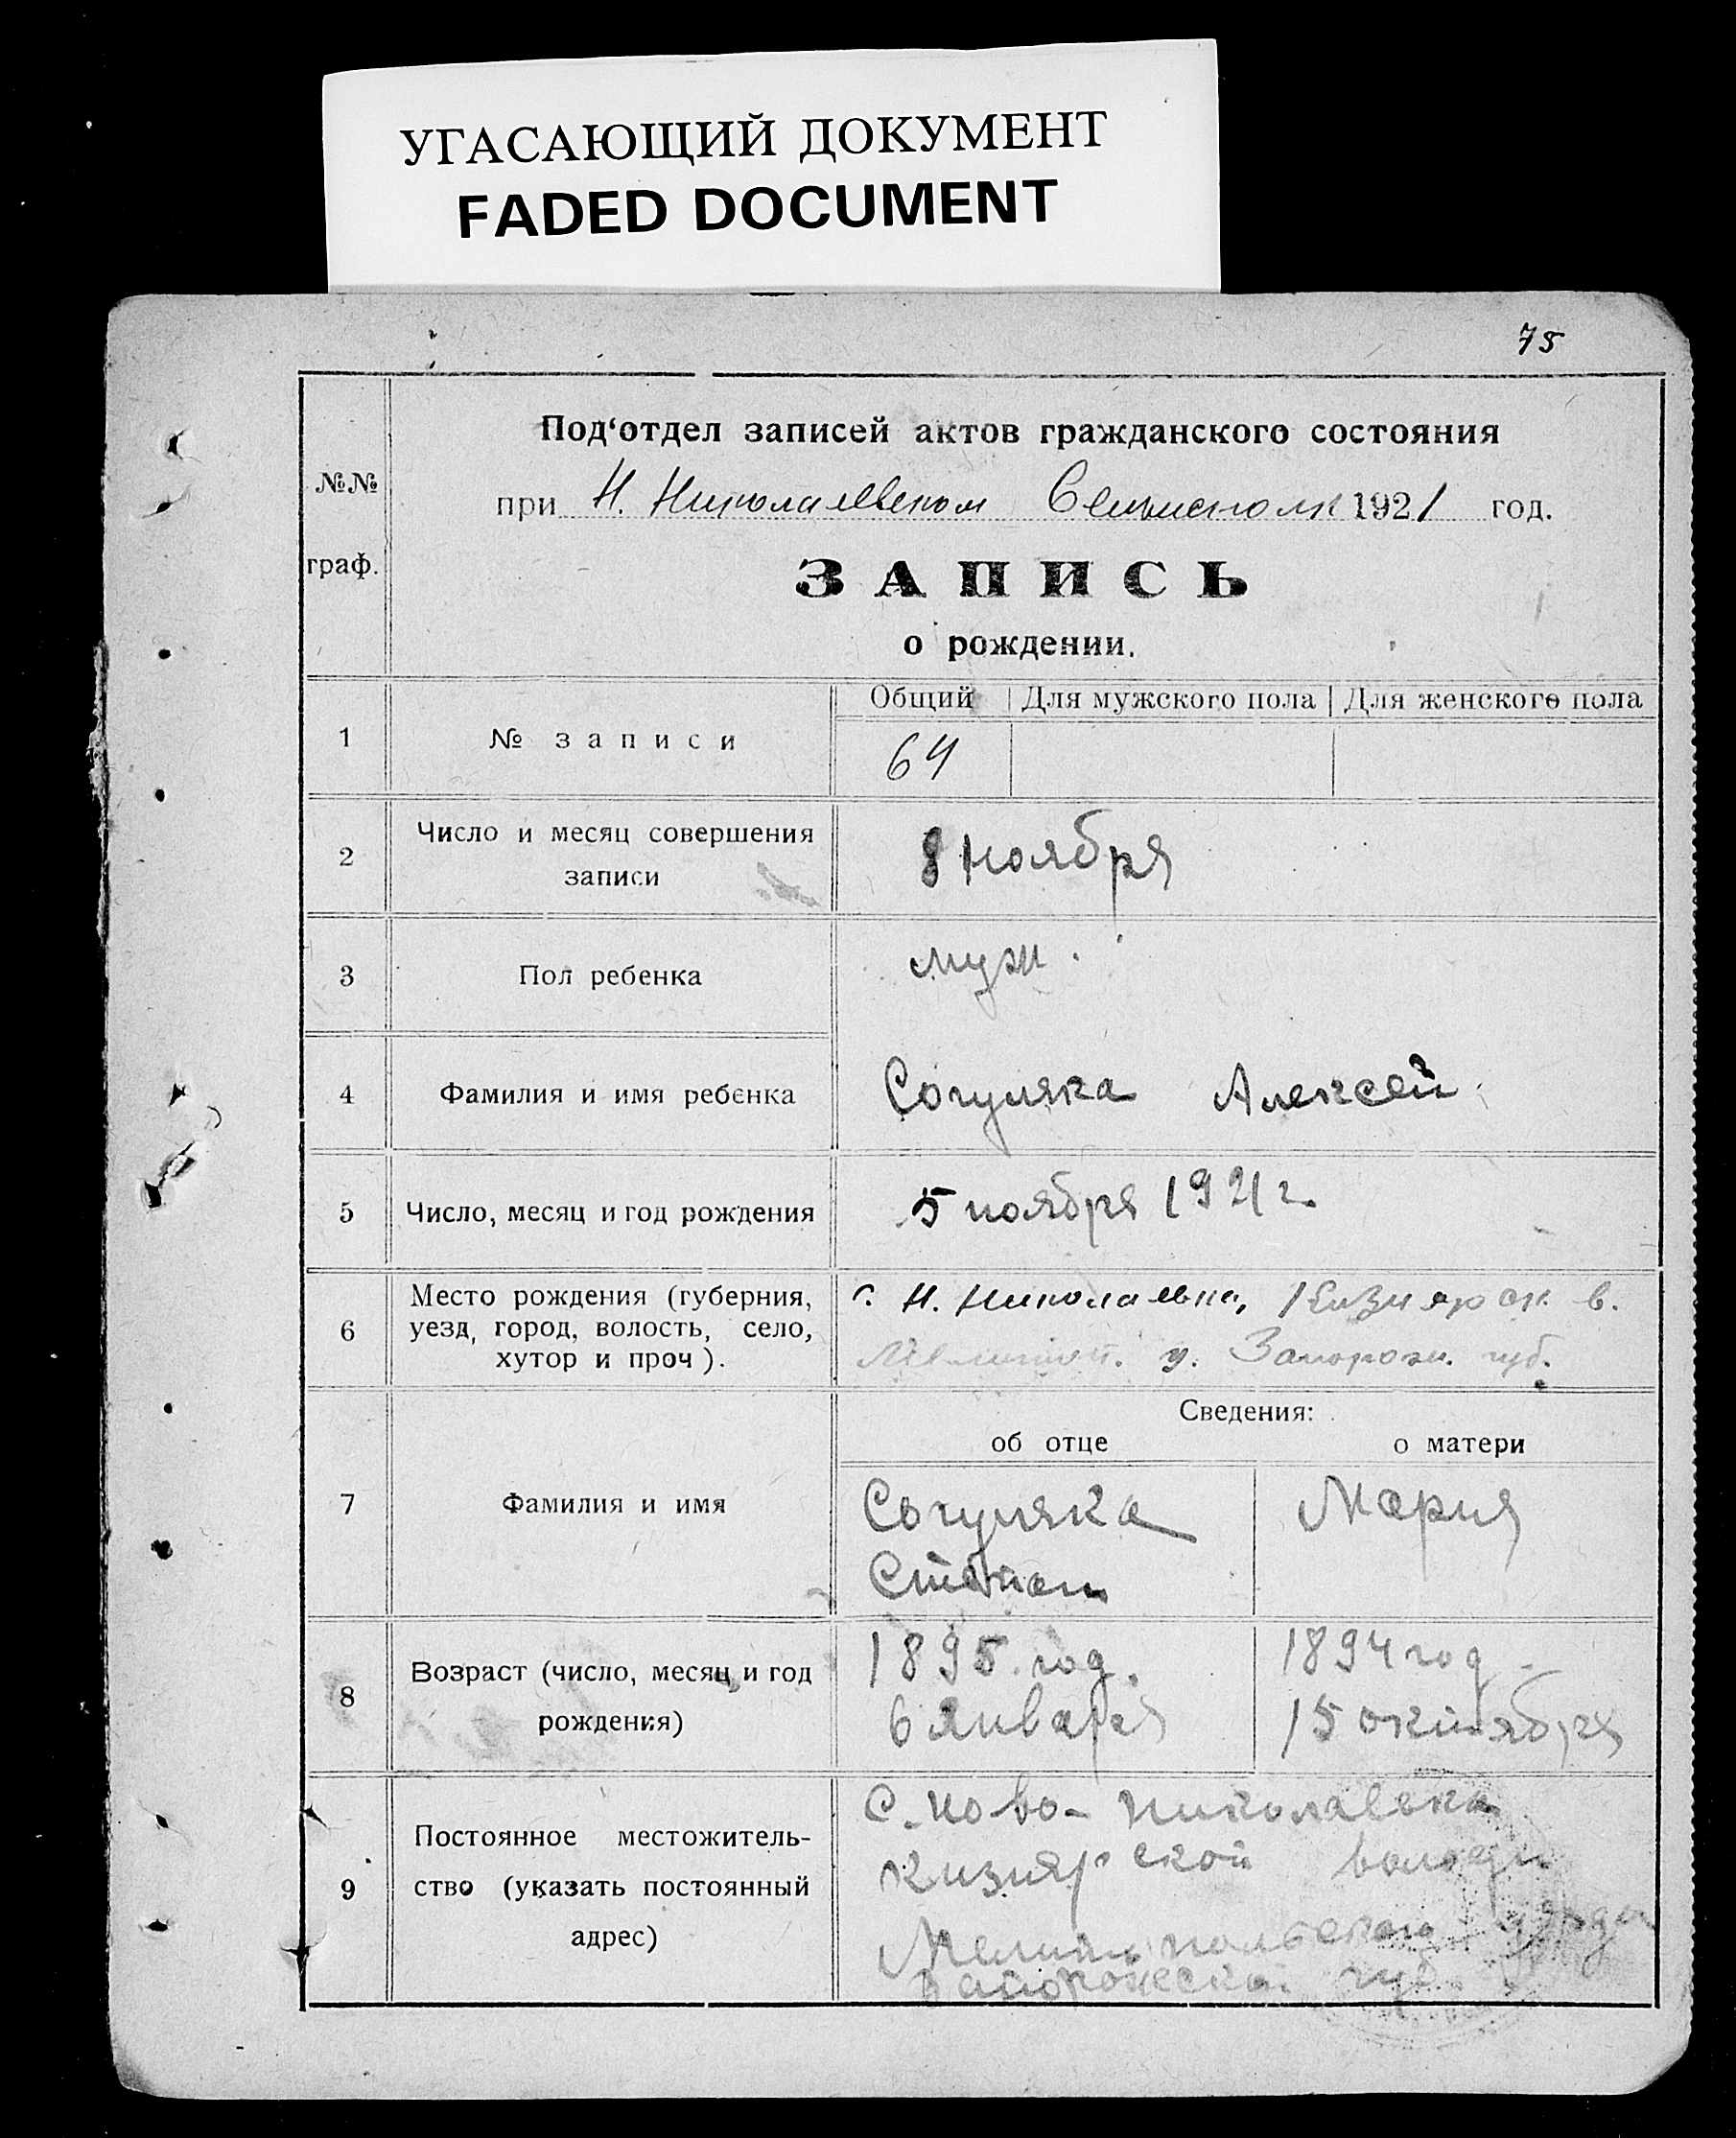 УГАСАЮЩИЙ ДОКУМЕНТ
FADED DOCUMENT
75
№№
граф.
Под'отдел записей актов гражданского состояния
при Н. Николаевском Сельисполк 1921 год.
ЗАПИСЬ
о рождении.
Общий Для мужского пола Для женского пола
1 № записи 64
2 Число и месяц совершения
записи
8 ноября
3 Пол ребенка муж.
4 Фамилия и имя ребенка Согуляка Алексей
5 Число, месяц и год рождения 5 ноября 1921 г.
6 Место рождения (губерния,
уезд, город, волость, село,
хутор и проч).
с. Н. Николаевка, Кизиярск. в.
Мелитоп. у. Запорож. губ.
Сведения:
об отце о матери
7 Фамилия и имя
Согуляка Мария
Степан
8 Возраст (число, месяц и год
рождения)
1895 год. 1894 год.
6 января 15 октября
9 Постоянное местожитель-
ство (указать постоянный
адрес)
с. Ново-Николаевка
Кизиярской
Мелитопольского уезда
Запорожской губ.